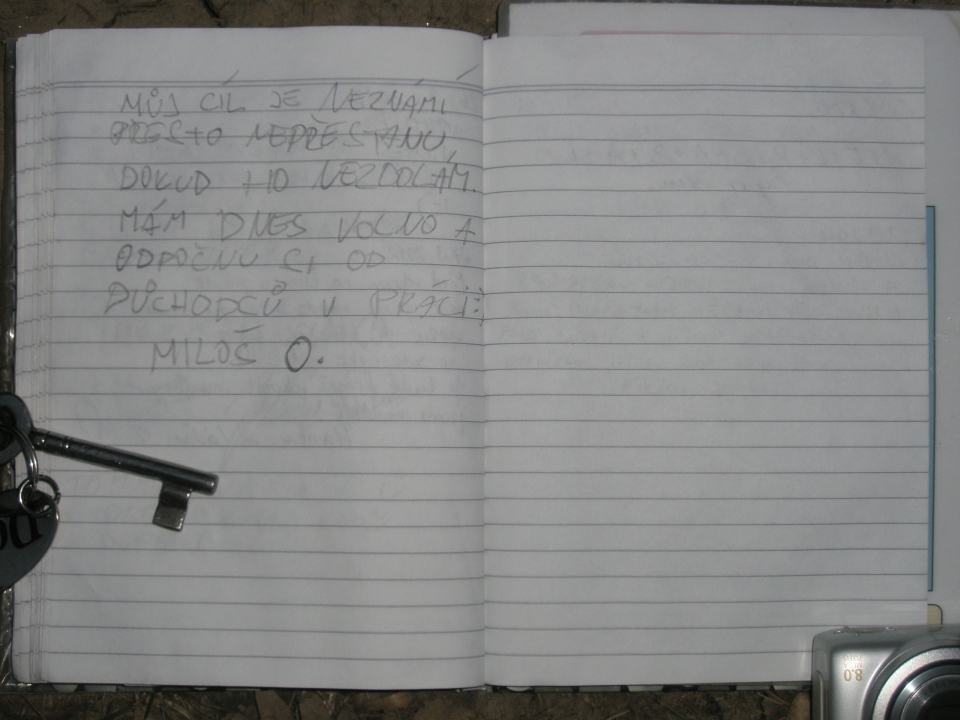 MŮJ CÍL JE NEZNÁMÍ
PŘESTO NEPŘESTANU
DOKUD HO NEZDOLÁM.
MÁM DNES VOLNO A
ODPOČNU SI OD
DŮCHODCŮ V PRÁCI:)
MILOŠ O.
8.0